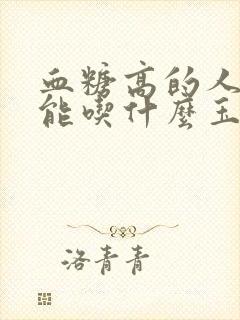 血糖高的人
能喫什麼玉
洛青青